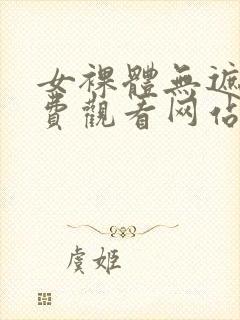 女裸體無遮
費觀看网佔
虞姬